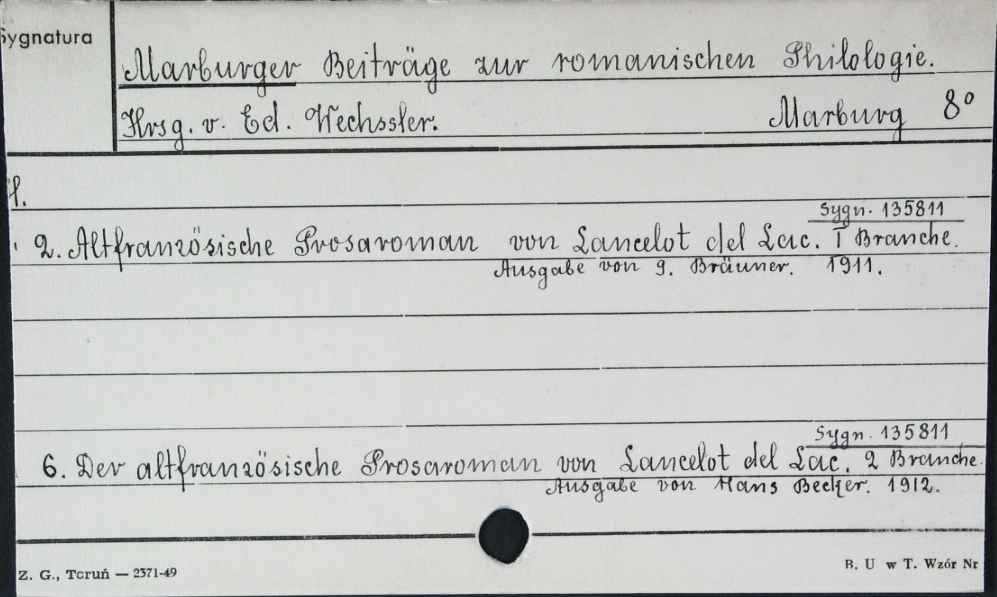 Sygnatura
Marburger Beiträge zur romanischen Philologie.
Hrsg. v. Ed. Wechssler. Marburg 8°
H.
Sygn. 135811
2. Altfranzösische Prosaroman von Lancelot del Lac. I Branche.
Ausgabe von G. Bräuner. 1911.
Sygn. 135811
6. Der altfranzösische Prosaroman von Lancelot del Lac. 2 Branche.
Ausgabe von Hans Becker. 1912.
Z. G., Toruń — 2371-49
B. U w T. Wzór Nr